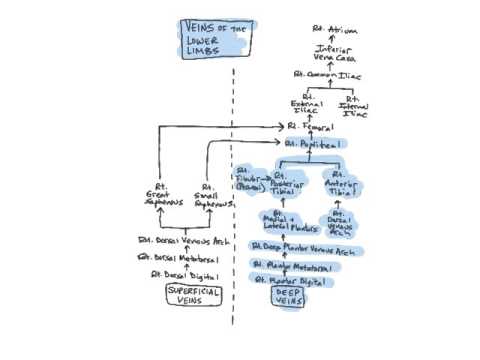 VEINS OF THE
LOWER
LIMBS
Rt. Atrium
Inferior
Vena Cava
Rt. Common Iliac
Rt.
External
Iliac
Rt.
Internal
Iliac
Rt. Femoral
Rt. Popliteal
Rt.
Great
Saphenous
Rt.
Small
Saphenous
Rt.
Fibular
Rt.
Posterior
Tibial
Rt.
Anterior
Tibial
Rt.
Medial +
Lateral Plantars
Rt.
Dorsal
Venous
Arch
Rt. Dorsal Venous Arch
Rt. Dorsal Metatarsal
Rt. Dorsal Digital
SUPERFICIAL
VEINS
Rt. Deep Plantar Venous Arch
Rt. Plantar Metatarsal
Rt. Plantar Digital
DEEP
VEINS